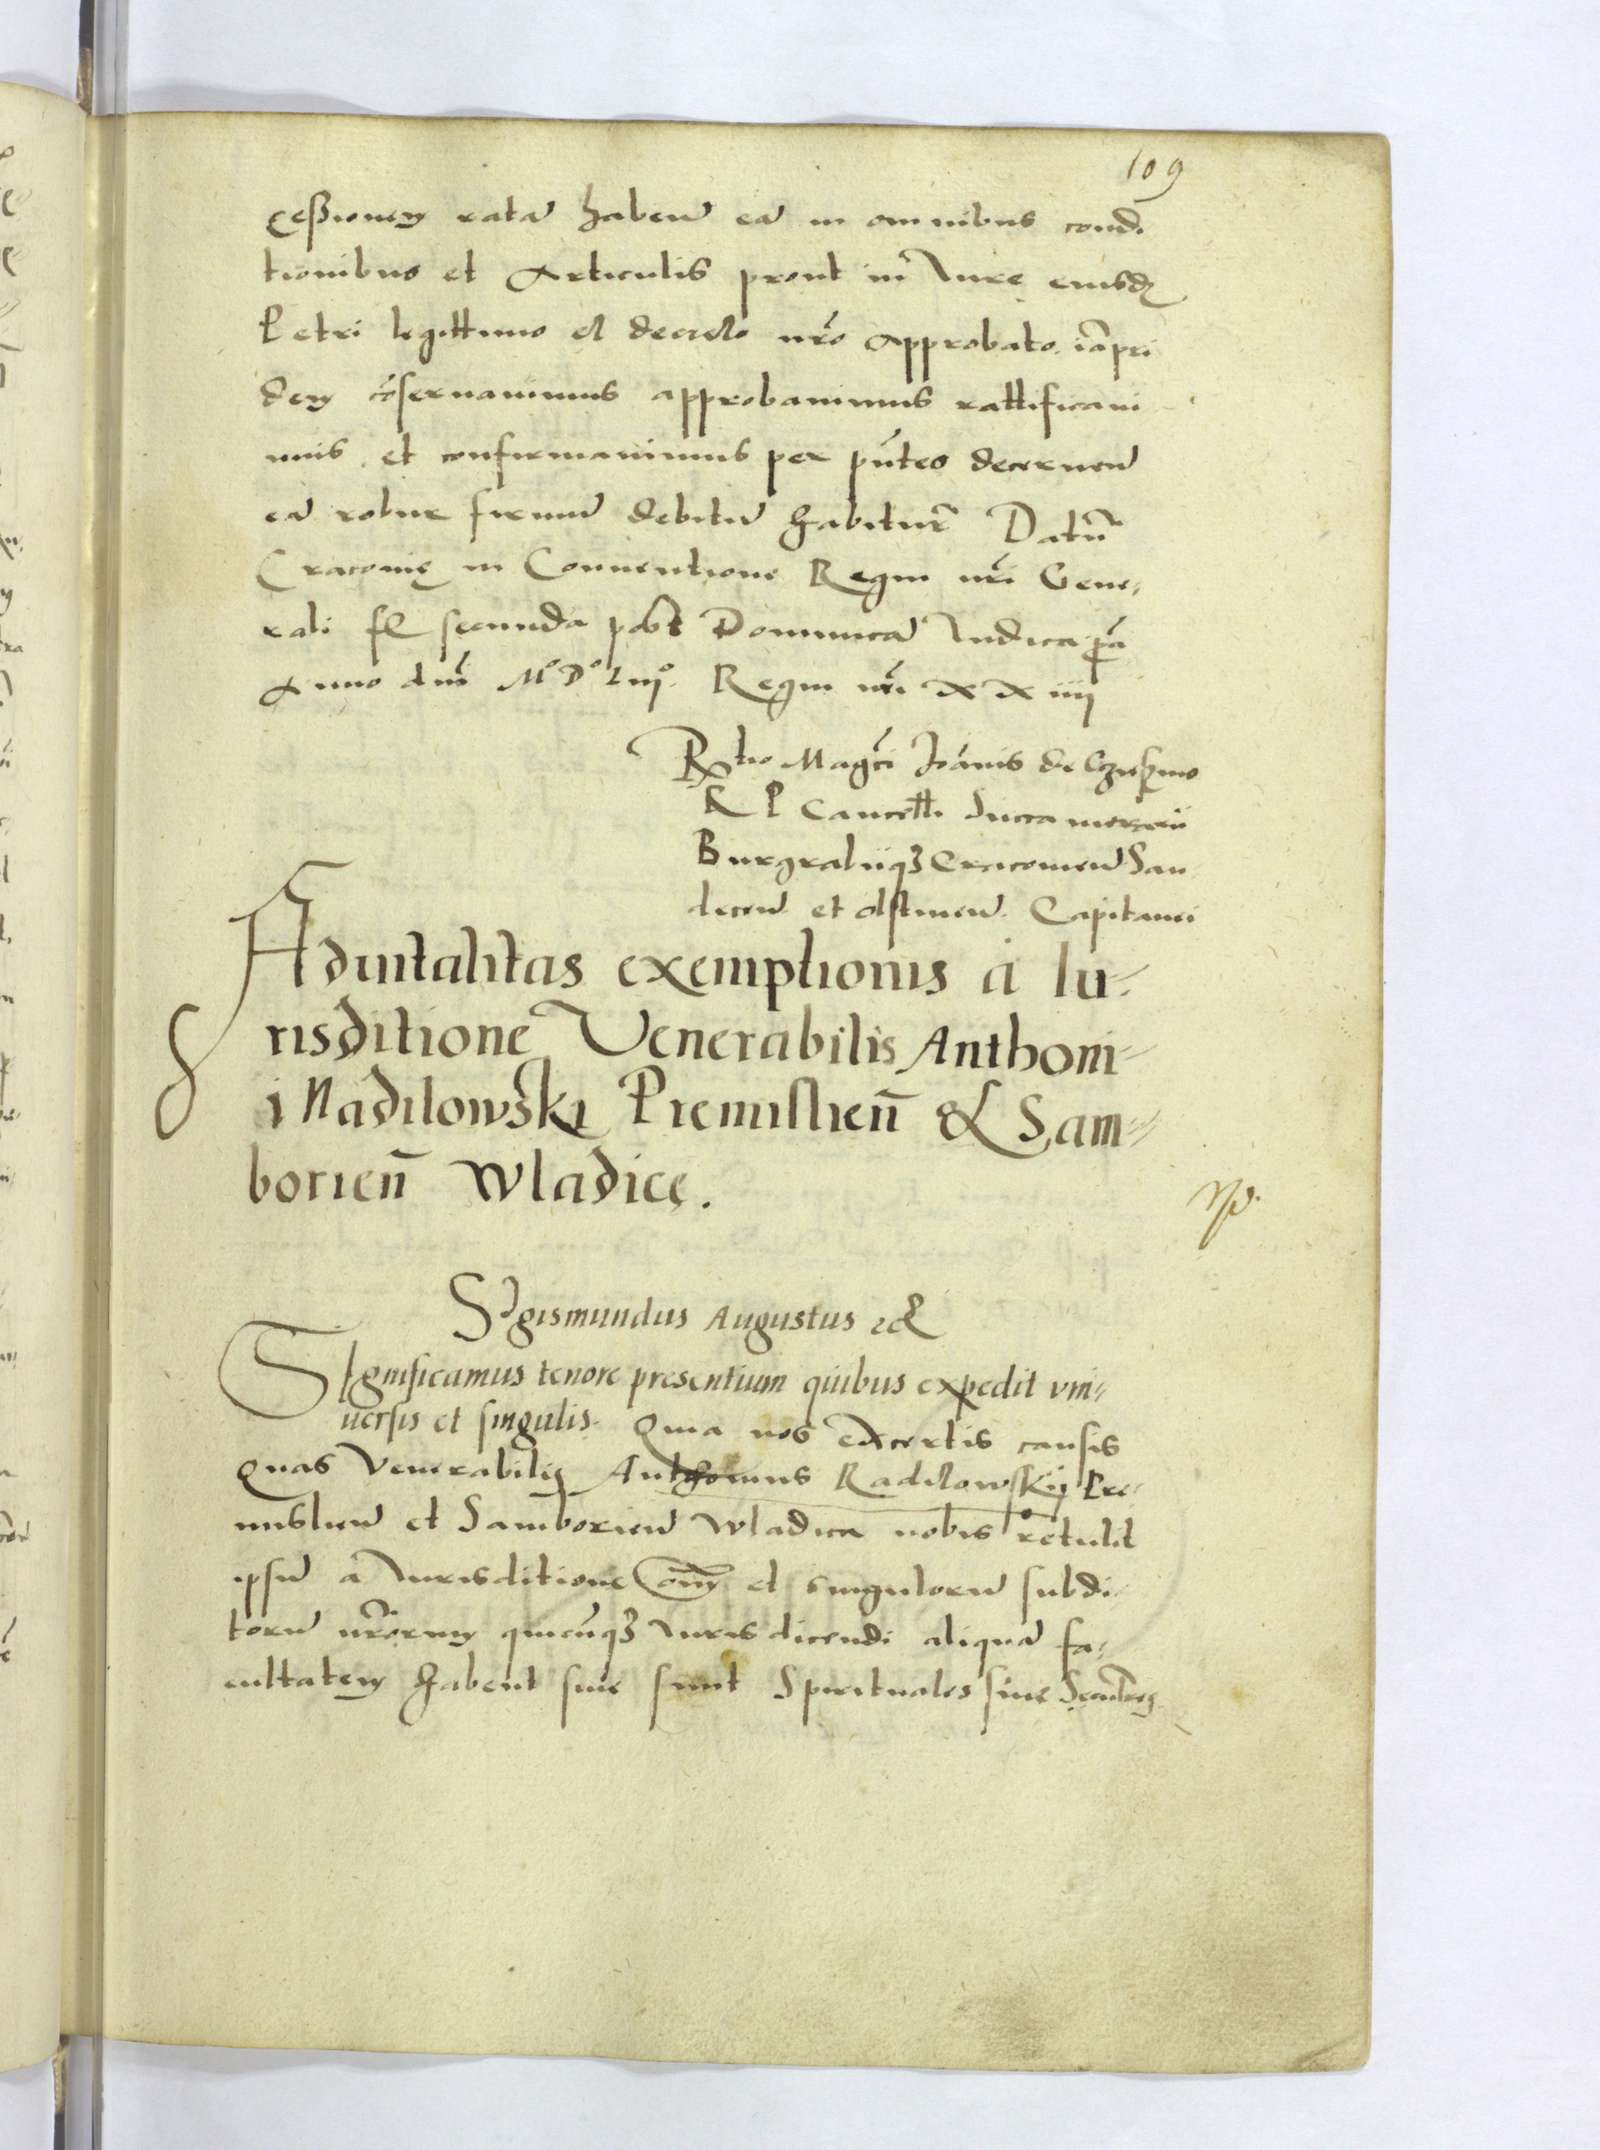 109
cessionem ratā habeñ eā in omnibus condi
tionibus et Articulis prout in Iure eiusdē
Petri legittimo et decreto nrō approbato iāpri
dem cōseruauimus approbauimus rattificaui
mus et confirmauimus per pn̄tes decerneñ
eā robur firmū debitū habiturā Datū
Cracouię in Conuentione Regni nr̄i Gene,
rali fe secunda post Dominicā Iudica p̄a
Anno dnī M° D° Liij° Regni nr̄i XX iiij
Rtio Magc̄i Ioānis de
R P Cancelli Succamerarii
Burgrabiiqȝ Cracouieñ San
deceñ et olstineñ Capitanei
Aduitalitas exemptionis à Iu-
risditione Venerabilis Anthoni-
i Radilowski Premislieñ & Sam-
borieñ Wladicę.
Sigismundus Augustus &
Significamus tenore presentium quibus expedit vni-
uersis et singulis. Quia nos ex certis causis
Quas Venerabilis Anthonius Radilowskij Pre
mislieñ et Samborieñ Wladica nobis retulit
ipsū a Iurisditione om̄ et singulorū subdi
torū nr̄orum quicūqȝ Iuris dicendi aliquā fa-
cultatem habent siue sunt Spirituales siue